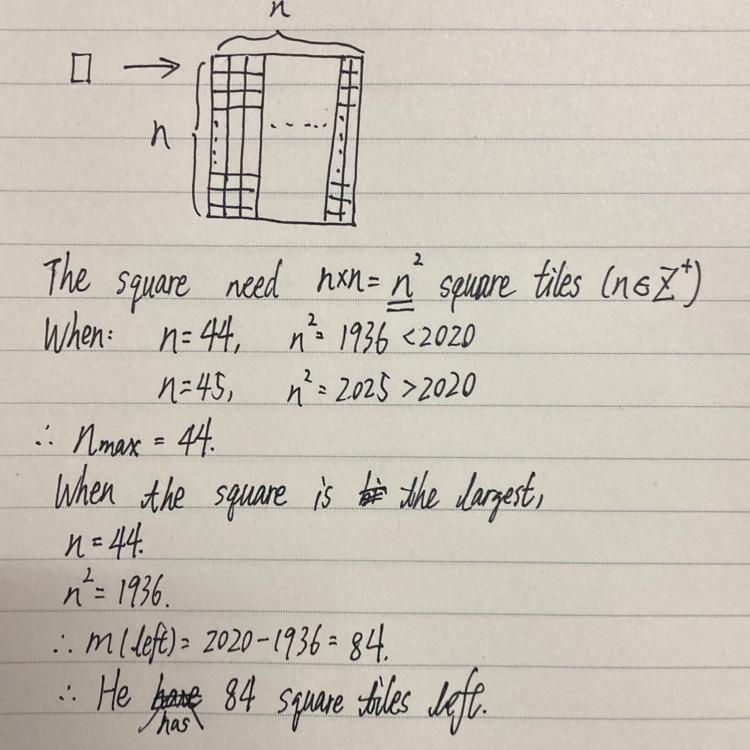 n
n
The square need n×n = n² square tiles (n∈Z⁺)
When: n=44, n²= 1936 <2020
n=45, n²= 2025 >2020
∴ nmax = 44.
When the square is the largest,
n = 44.
n² = 1936.
∴ m(left) = 2020-1936 = 84.
∴ He has 84 square tiles left.